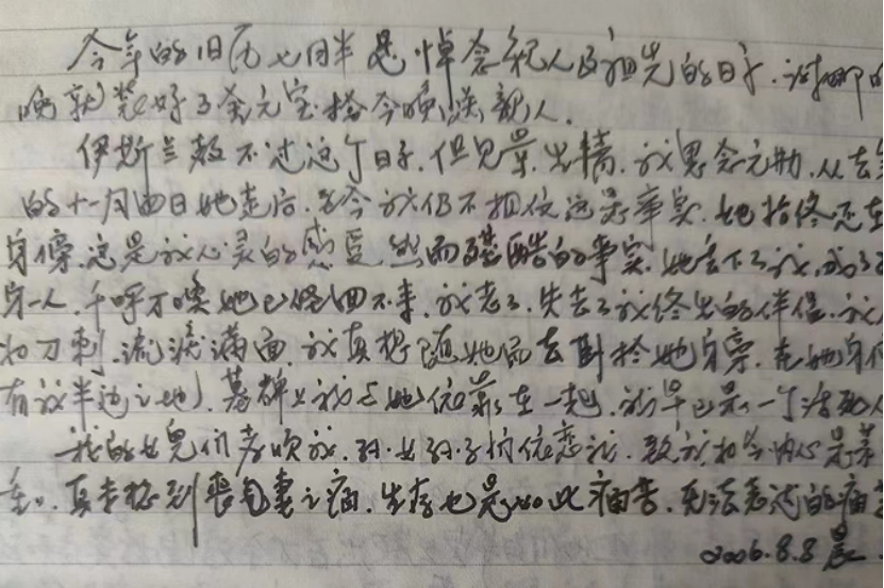 今年的旧历七月半是悼念亲人及祖先的日子.
晚就装好了金元宝.于今晚送亲人.
伊斯兰教不过这个日子.但见景生情.我思念.从去年
的十一月四日她走后.至今我仍不相信这是事实.她始终还在
身傍.这是我心灵的感受.然而残酷的事实.她丢下了我.成了
身一人.千呼万唤她已经回不来.我老了.失去了我终生的伴侣.我
如刀刺.流泪满面.我真想随她而去卧于她身旁.在她身
有我半边之地).墓碑上我与她依靠在一起.我早已是一个活死人
我的女儿们孝顺我.孙女孙子们依恋我.内心是
真幸.到丧妻之痛.生存也是如此痛苦.无法表达的痛苦
2006.8.8晨.